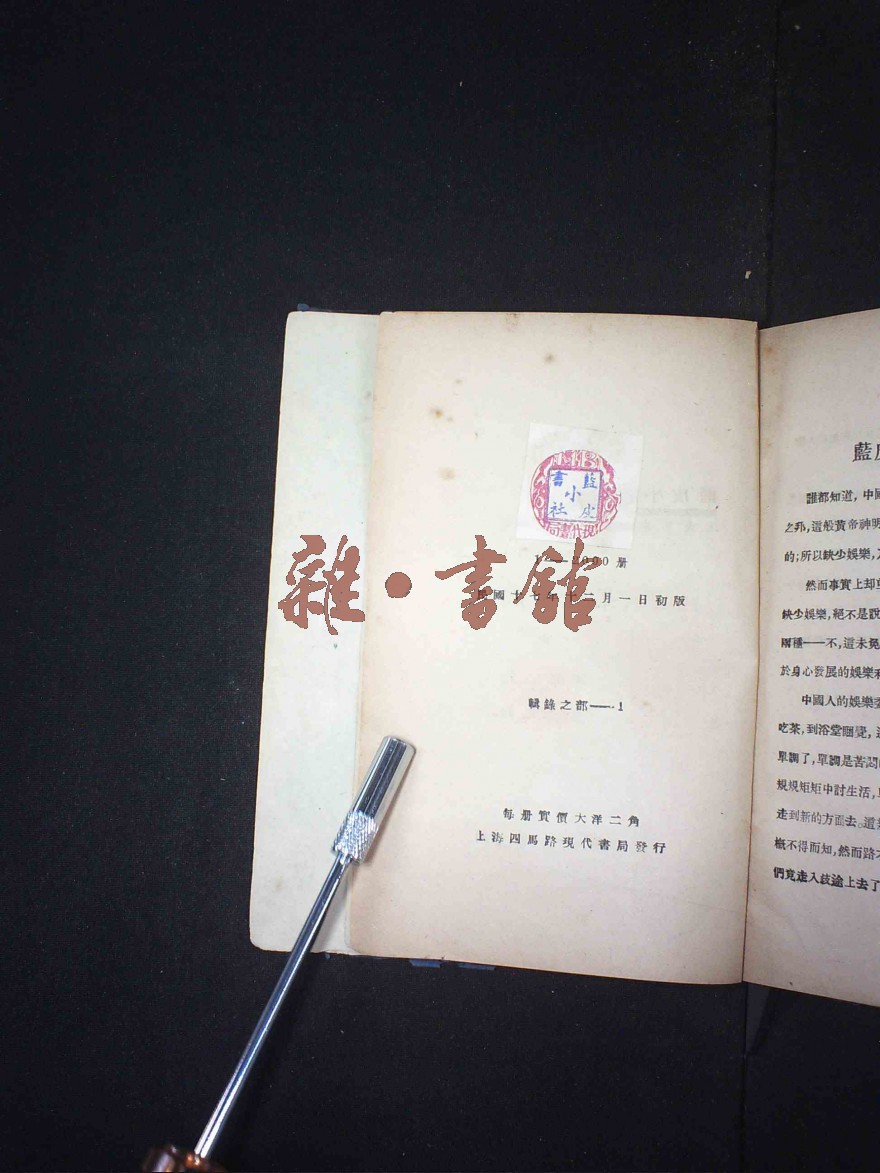 藍皮小書社
現代書局
雜·書舘
000册
國十七年十二月一日初版
輯錄之部——1
每册實價大洋二角
上海四馬路現代書局發行
藍
誰都知道,中國
之邦,這般黃帝神明
的;所以缺少娛樂,
然而事實上却
缺少娛樂,絕不是說
兩種——不,這未免
於身心發展的娛樂
中國人的娛樂
吃茶,到浴堂睏覺,
單調了,單調是苦悶
規規矩矩中討生活,
走到新的方面去。這
概不得而知,然而路
們竟走入歧途上去了